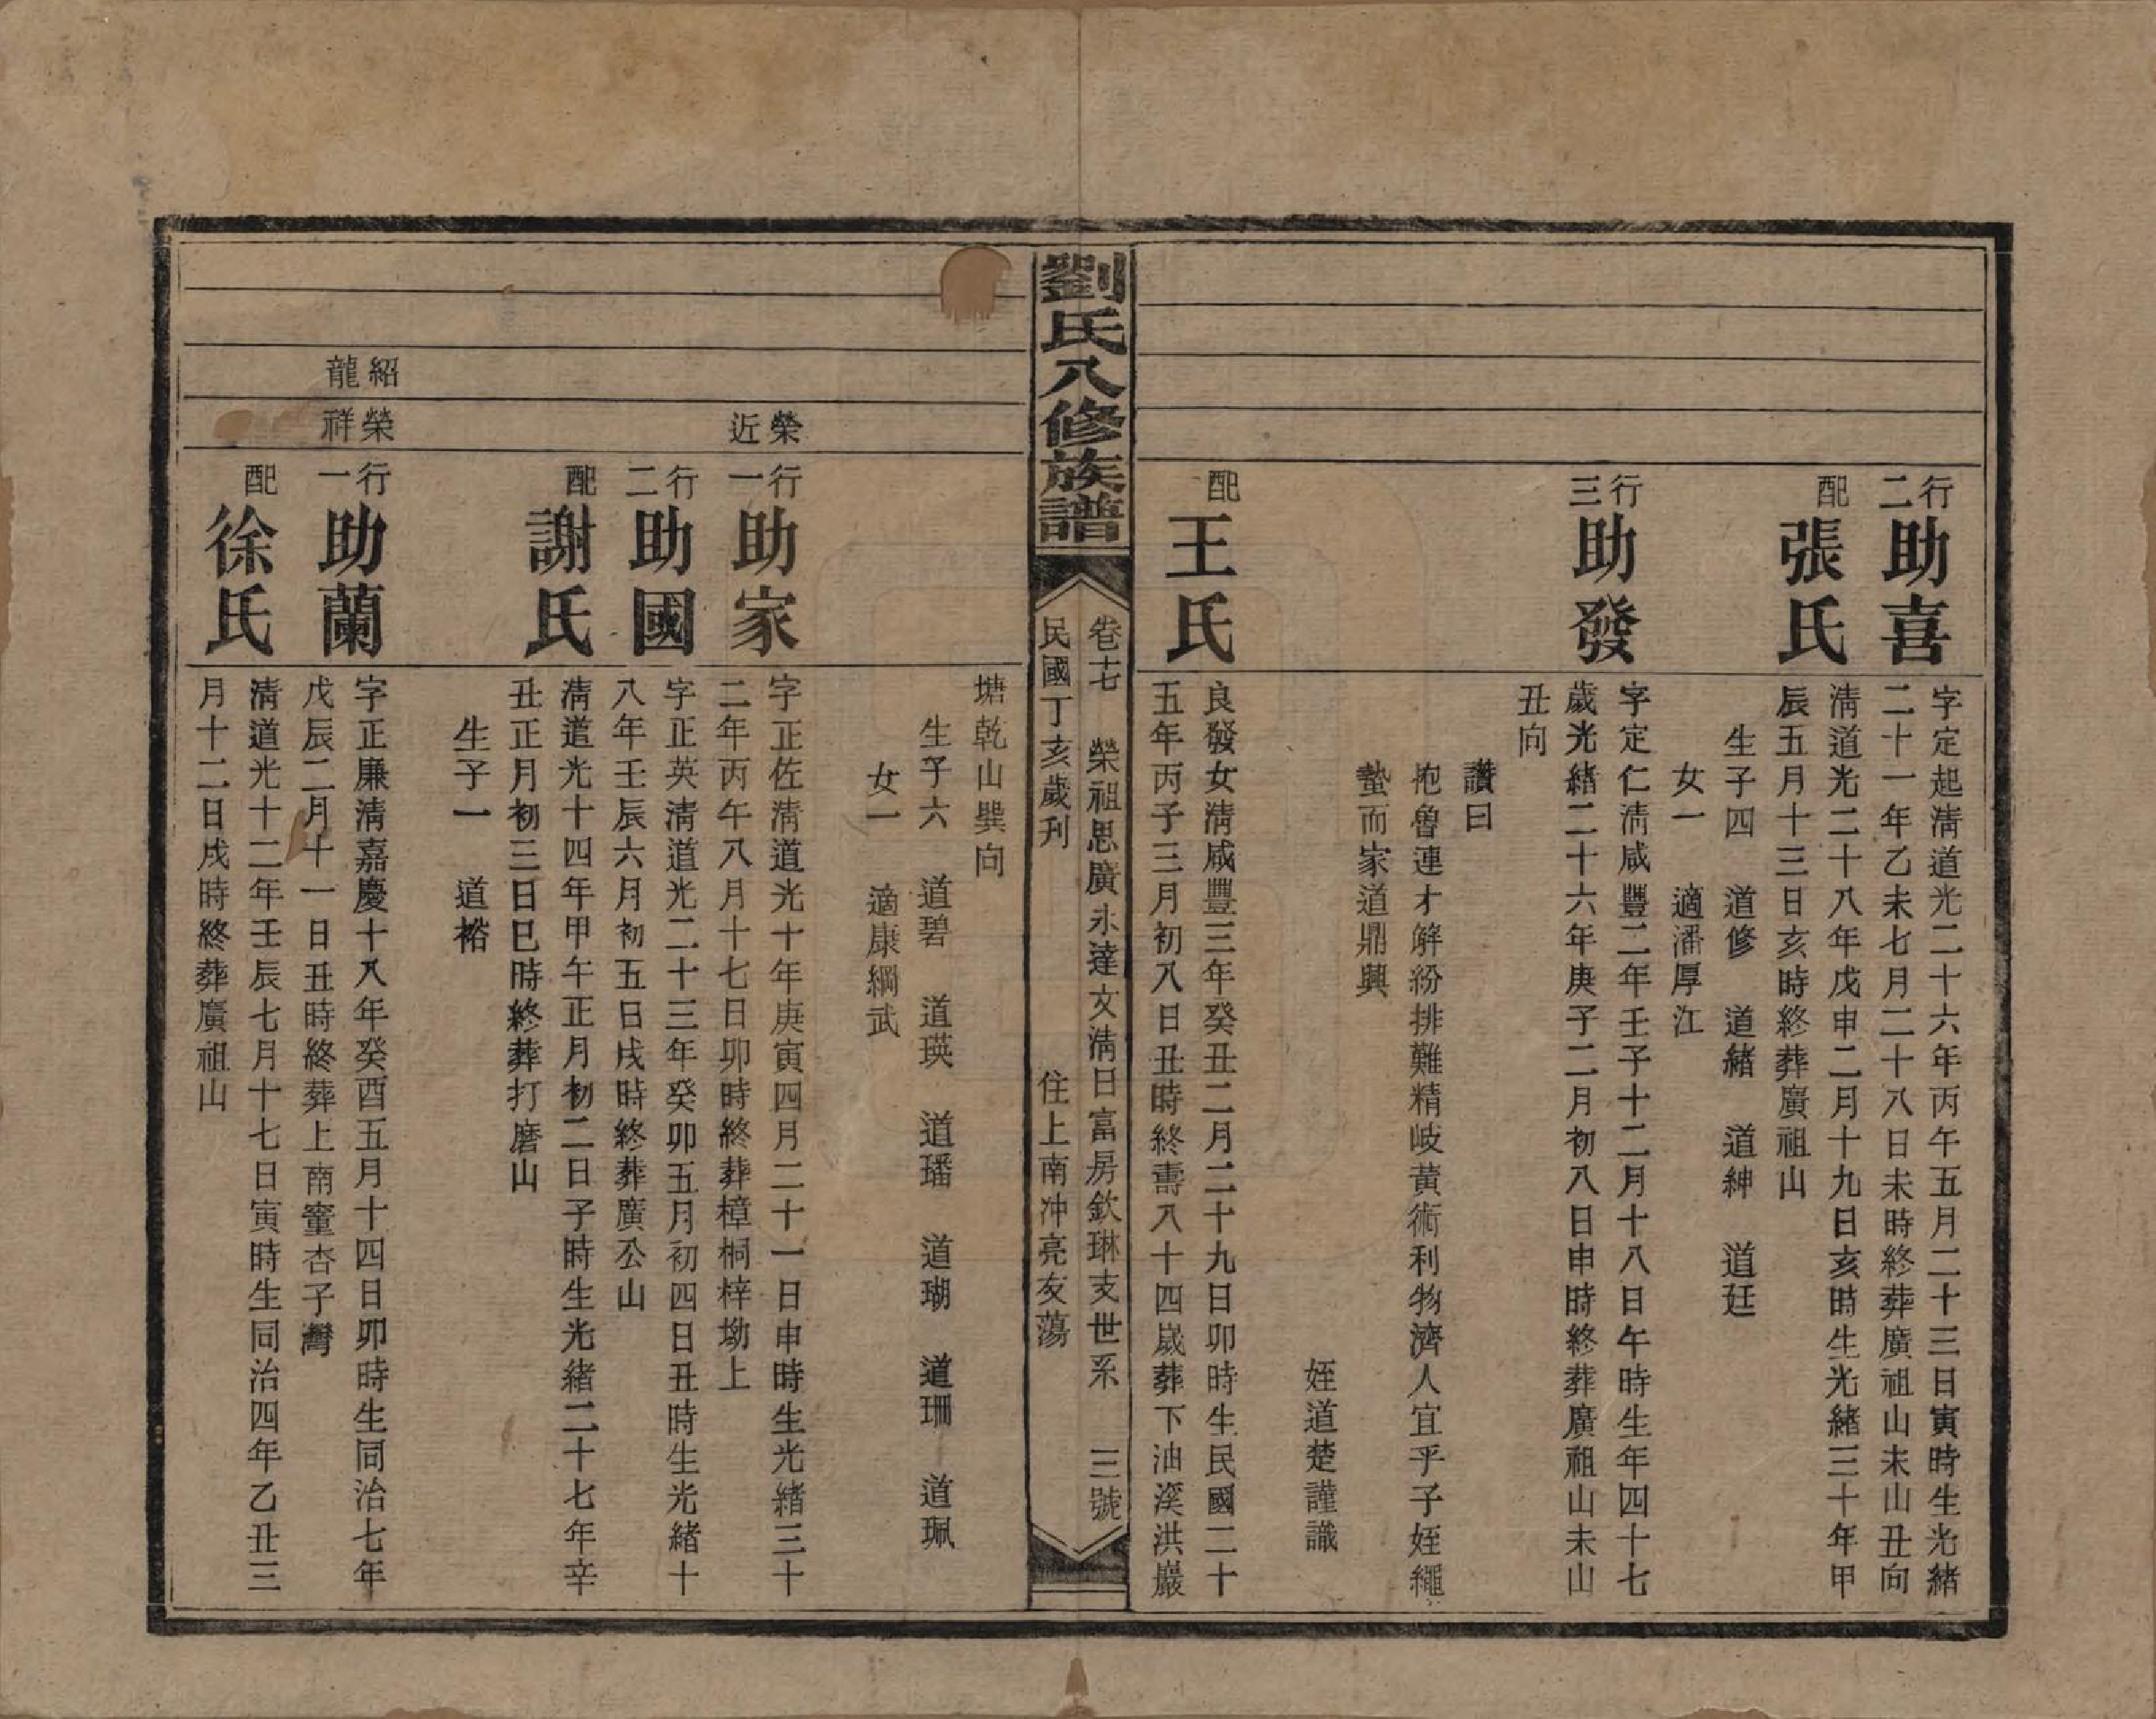 行二
助喜
字定起清道光二十六年丙午五月二十三日寅時生光緒
二十一年乙未七月二十八日未時終葬廣祖山未山丑向
配
張氏
清道光二十八年戊申二月十九日亥時生光緒三十年甲
辰五月十三日亥時終葬廣祖山
生子四 道修 道緒 道紳 道廷
女一 適潘厚江
行三
助發
字定仁清咸豐二年壬子十二月十八日午時生年四十七
歲光緒二十六年庚子二月初八日申時終葬廣祖山未山
丑向
讚曰
抱魯連才解紛排難精岐黃術利物濟人宜乎子姪繩
蟄而家道鼎興
姪道楚謹識
配
王氏
良發女清咸豐三年癸丑二月二十九日卯時生民國二十
五年丙子三月初八日丑時終壽八十四歲葬下油溪洪巖
劉氏八修族譜
卷十七 榮祖思廣永達文清日富房欽琳支世系 三號
民國丁亥歲刋 住上南冲亮友蕩
塘乾山巽向
生子六 道碧 道瑛 道璠 道瑚 道珊 道珮
女一 適康綱武
榮近
行一
助家
字正佐清道光十年庚寅四月二十一日申時生光緒三十
二年丙午八月十七日卯時終葬樟桐梓坳上
行二
助國
字正英清道光二十三年癸卯五月初四日丑時生光緒十
八年壬辰六月初五日戌時終葬廣公山
配
謝氏
清道光十四年甲午正月初二日子時生光緒二十七年辛
丑正月初三日巳時終葬打磨山
生子一 道裕
紹龍
榮祥
行一
助蘭
字正廉清嘉慶十八年癸酉五月十四日卯時生同治七年
戊辰二月十一日丑時終葬上南窰杏子灣
配
徐氏
清道光十二年壬辰七月十七日寅時生同治四年乙丑三
月十二日戌時終葬廣祖山